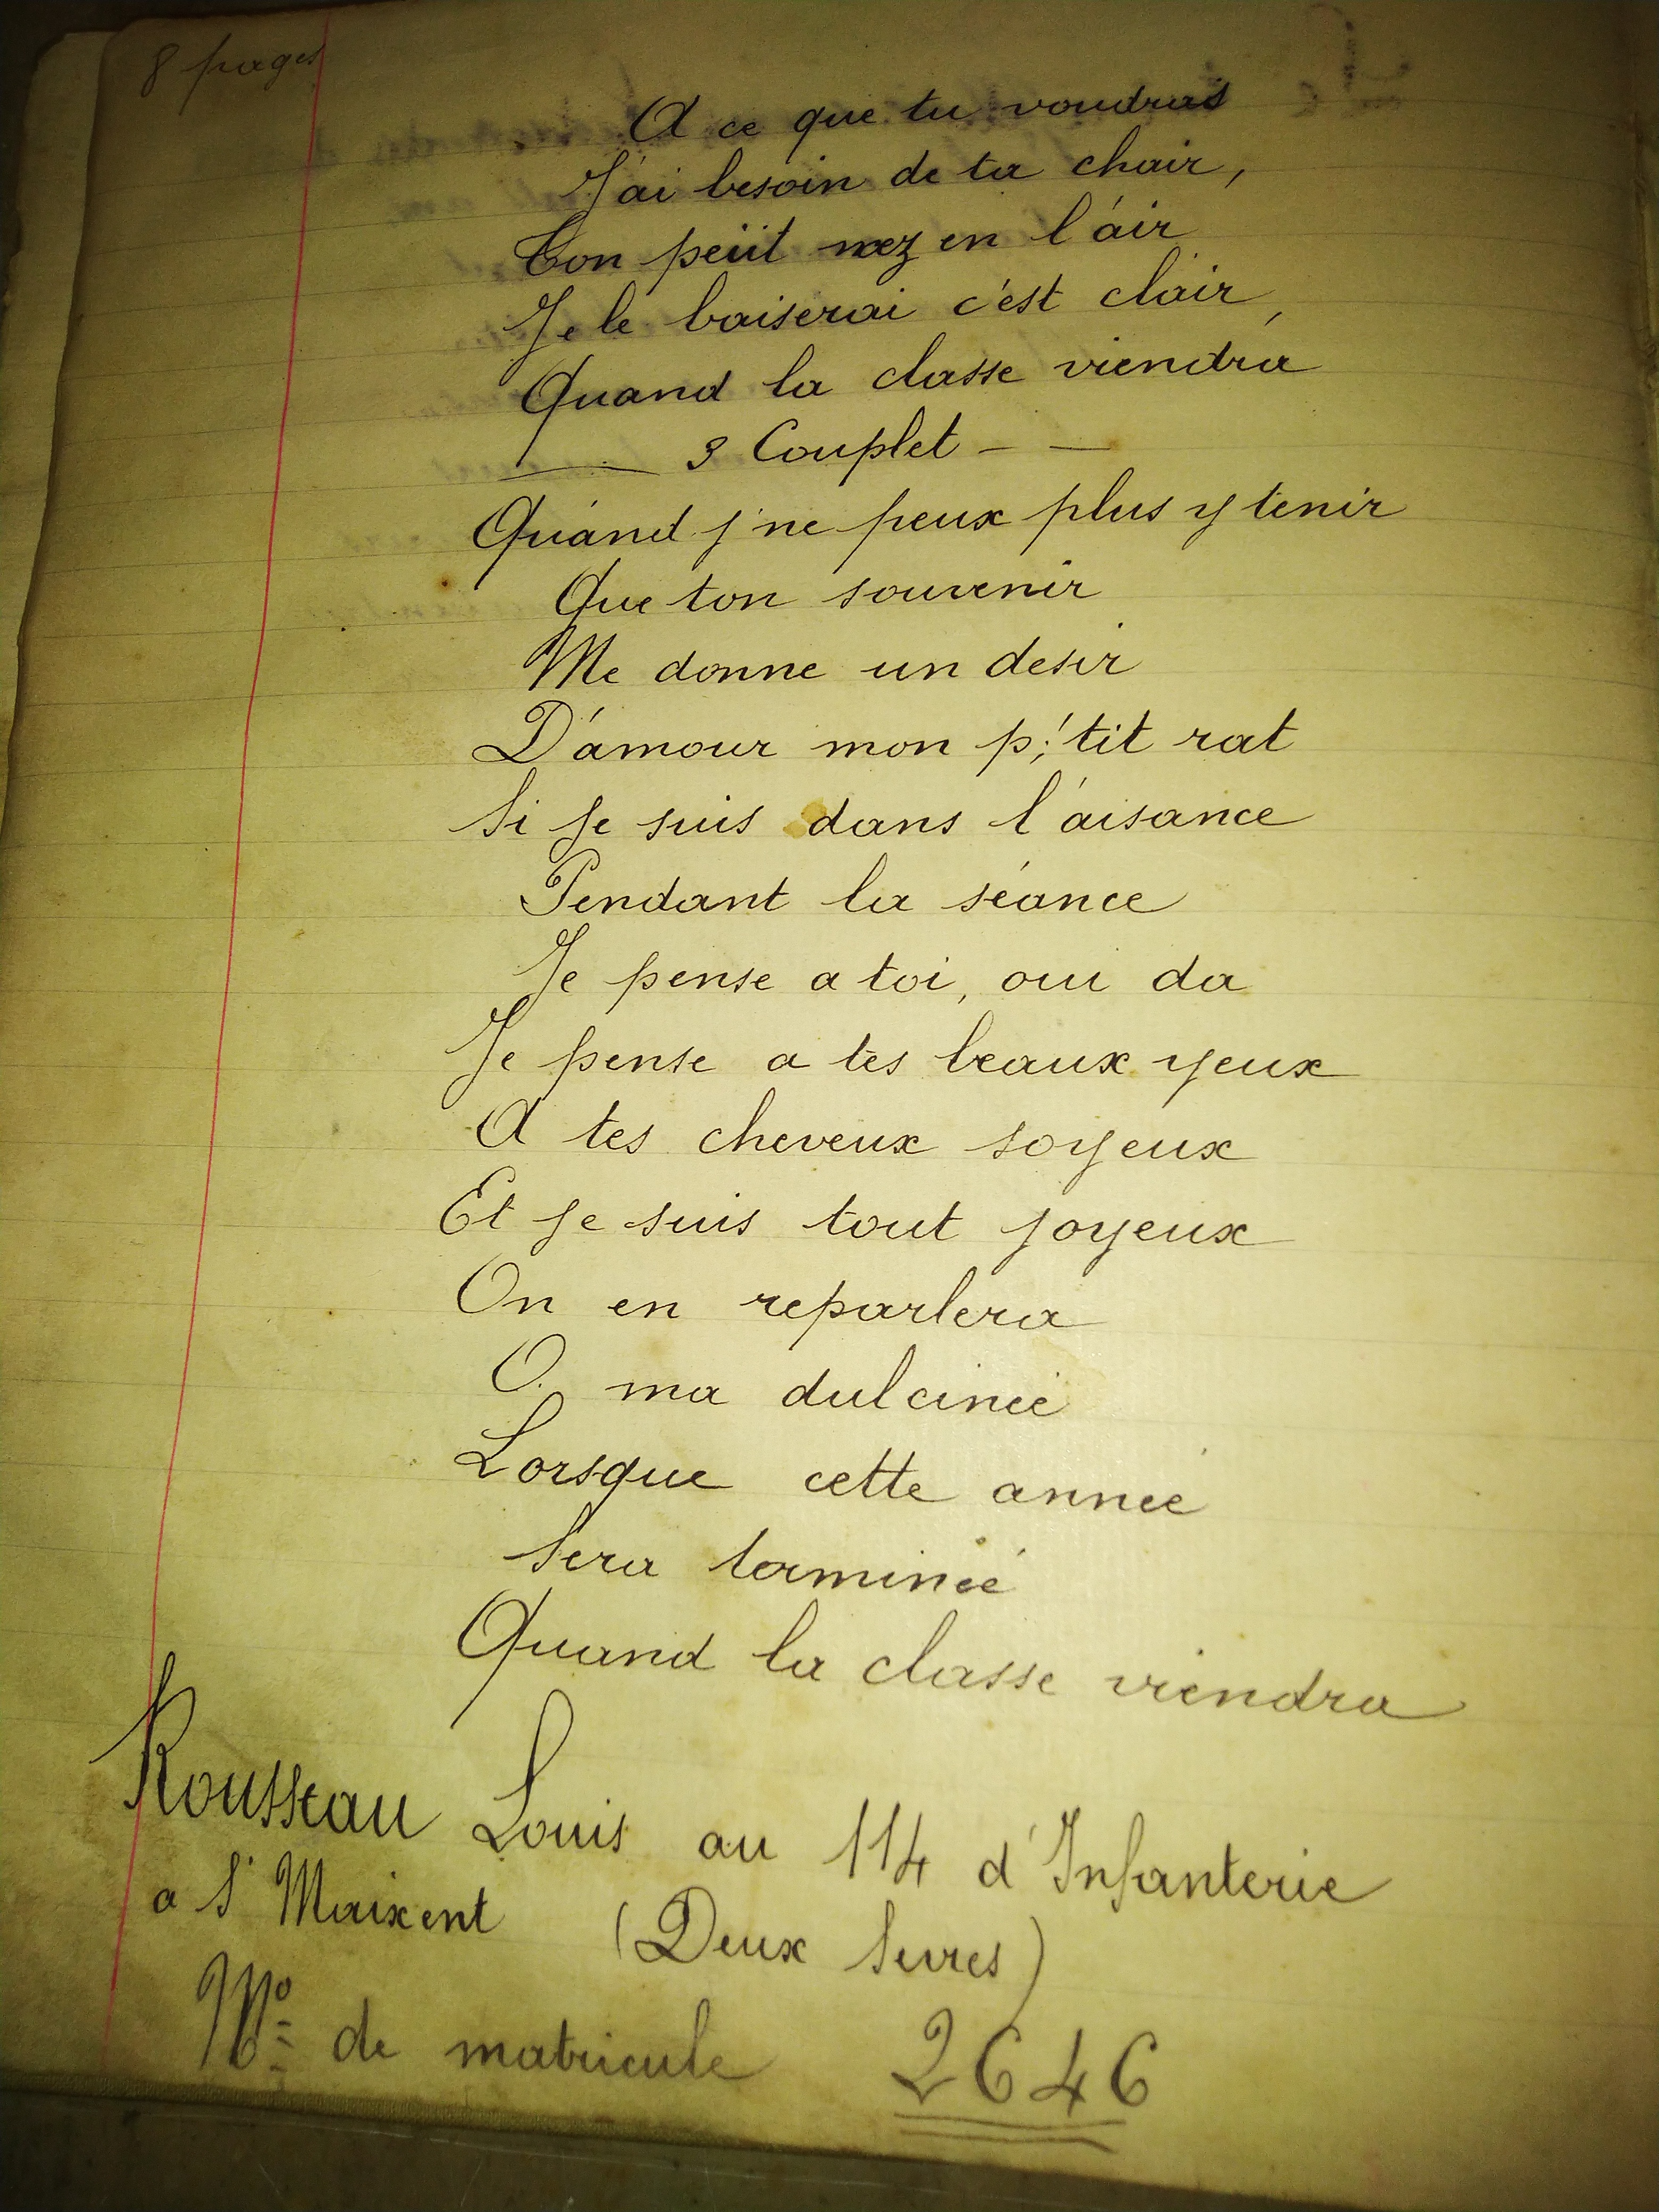 8 pages
A ce que tu voudras
J'ai besoin de ta chair,
Ton petit nez en l'air
Je le baiserai c'est clair,
Quand la classe viendra
3 Couplet
Quand j'ne peux plus y tenir
Que ton souvenir
Me donne un desir
D'amour mon p'tit rat
Si je suis dans l'aisance
Pendant la séance
Je pense a toi, oui da
Je pense a tes beaux yeux
A tes cheveux soyeux
Et je suis tout joyeux
On en reparlera
O ma dulcinée
Lorsque cette année
Sera terminée
Quand la classe viendra
Rousseau Louis au 114 d'Infanterie
a St Maixent (Deux Sevres)
No de matricule 2646